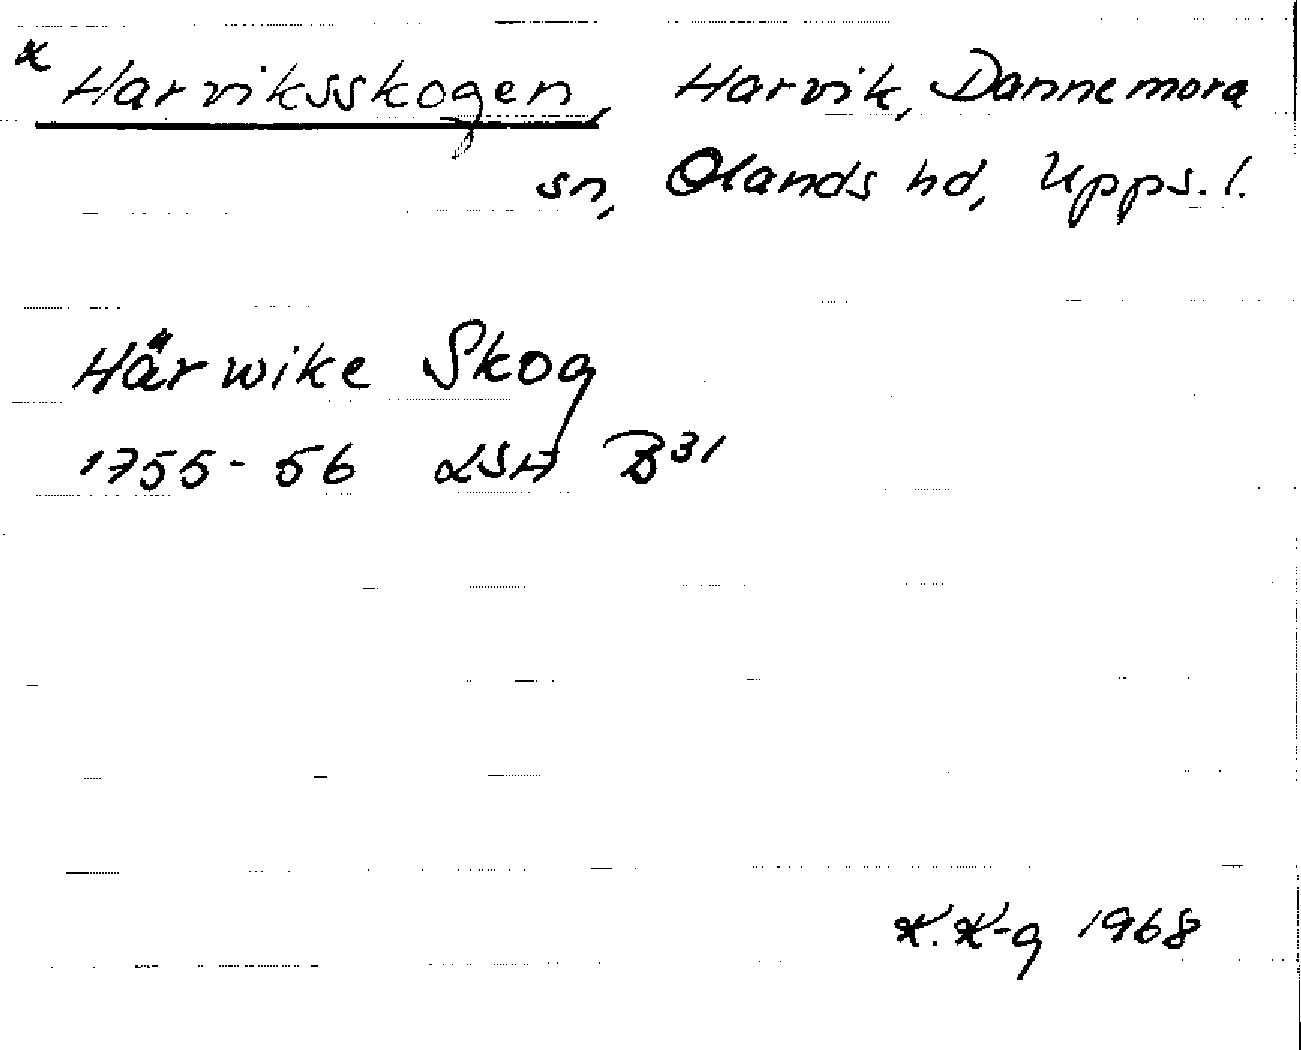 x Harviksskogen, Harvik, Dannemora
sn, Olands hd, Upps. l.
Härwike Skog
1755-56 LSA B31
K. K-g 1968